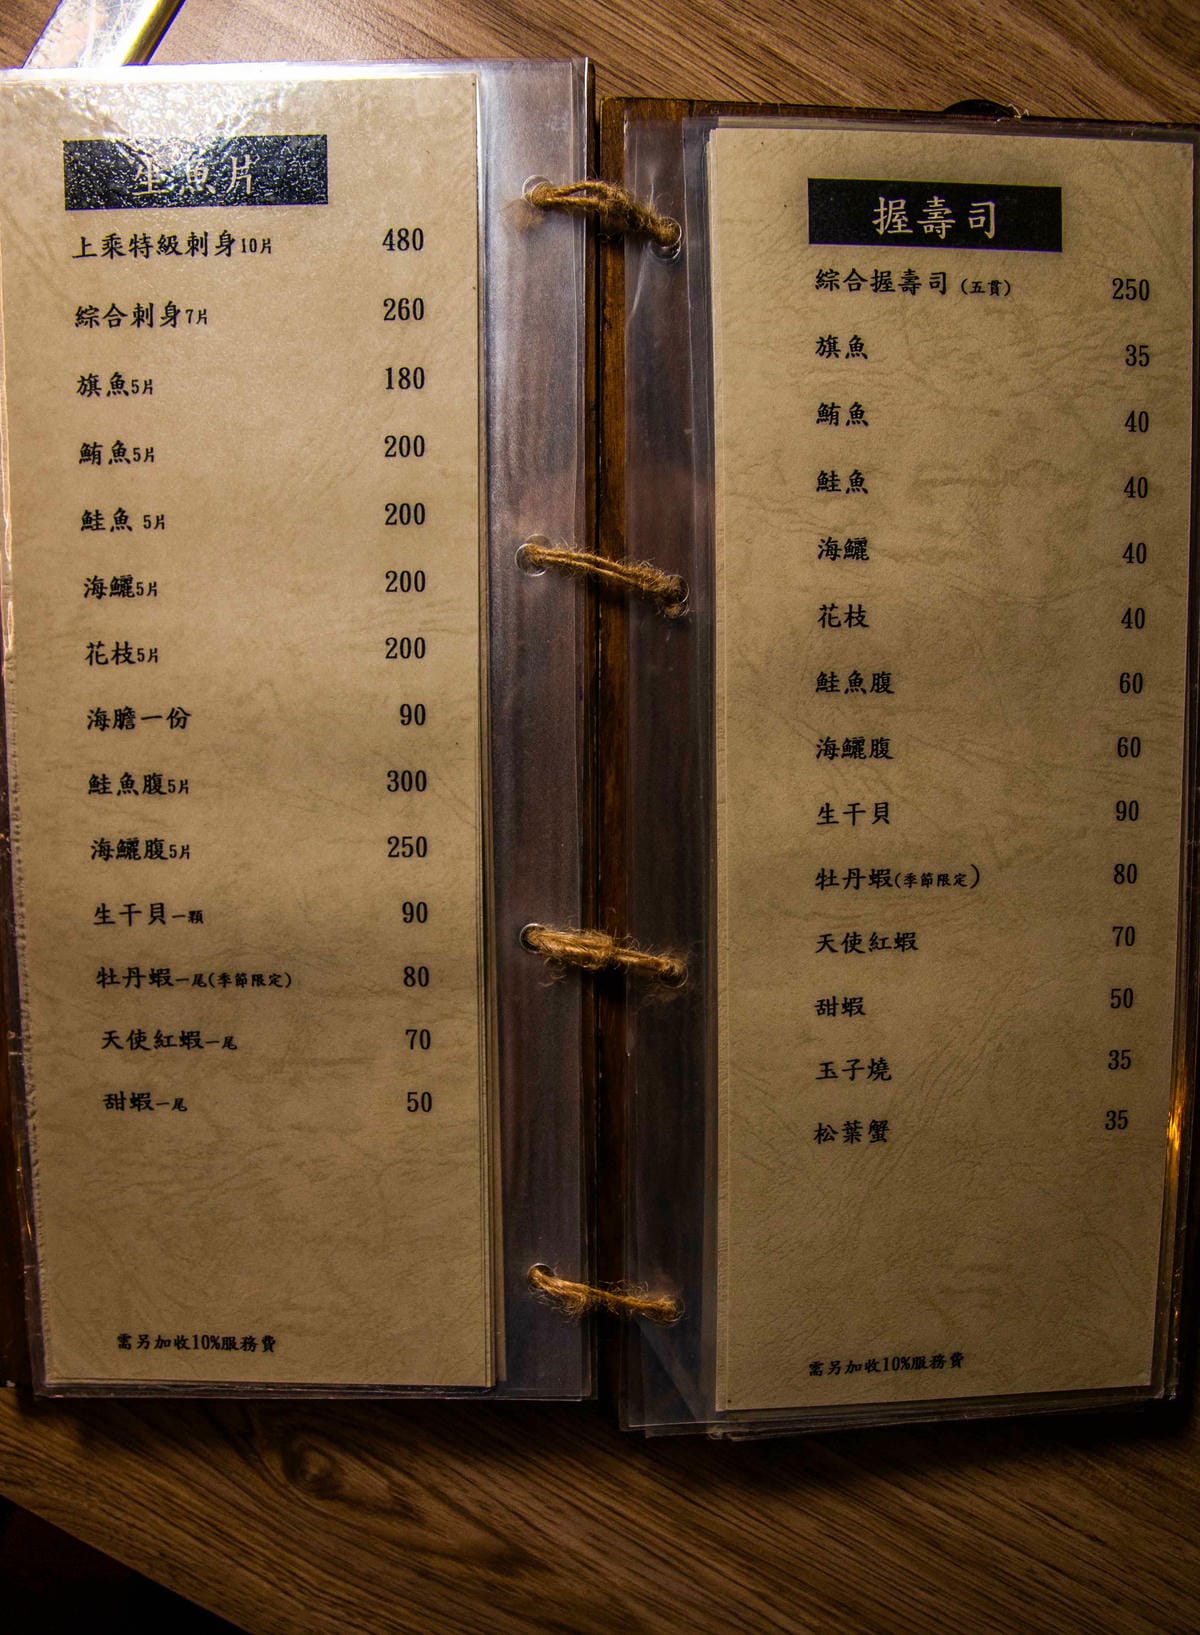 生魚片
上乘特級刺身10片 480
綜合刺身7片 260
旗魚5片 180
鮪魚5片 200
鮭魚 5片 200
海鱺5片 200
花枝5片 200
海膽一份 90
鮭魚腹5片 300
海鱺腹5片 250
生干貝一顆 90
牡丹蝦一尾(季節限定) 80
天使紅蝦一尾 70
甜蝦一尾 50
需另加收10%服務費
握壽司
綜合握壽司 (五貫) 250
旗魚 35
鮪魚 40
鮭魚 40
海鱺 40
花枝 40
鮭魚腹 60
海鱺腹 60
生干貝 90
牡丹蝦(季節限定) 80
天使紅蝦 70
甜蝦 50
玉子燒 35
松葉蟹 35
需另加收10%服務費